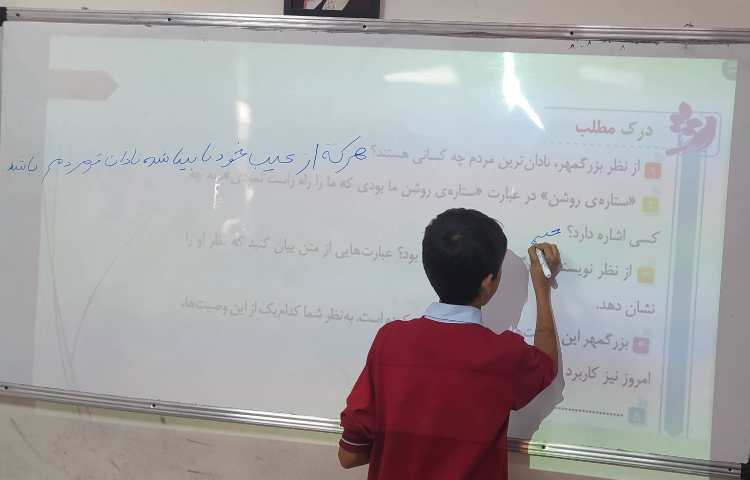 درک مطلب
1 از نظر بزرگمهر، نادان‌ترین مردم چه کسانی هستند؟ هر که از عیب خود نابینا شود نادان تو مردم باشد
2 «ستاره‌ی روشن» در عبارت «ستاره‌ی روشن ما بودی که ما را راه راست نمودی» به چه
کسی اشاره دارد؟
3 از نظر نویسنده بود؟ عبارت‌هایی از متن بیان کنید که نظر او را
نشان دهد.
4 بزرگمهر این است. به نظر شما کدام‌یک از این وصیت‌ها،
امروز نیز کاربرد
5 ....................